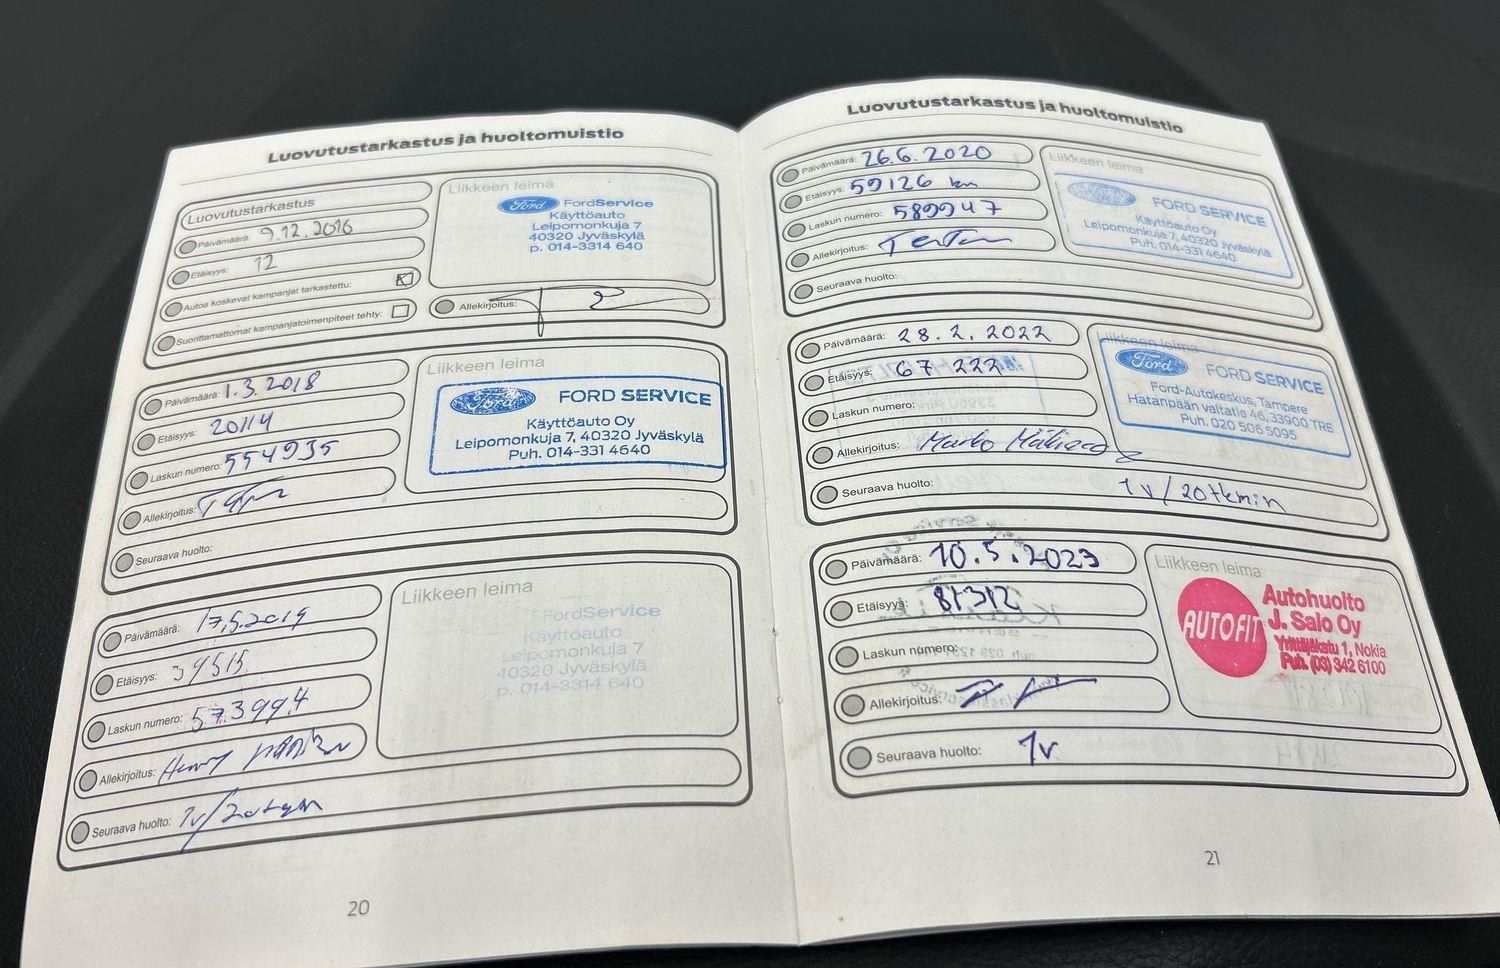 Luovutustarkastus ja huoltomuistio
Luovutustarkastus
Päivämäärä: 9.12.2016
Etäisyys: 12
Autoa koskevat kampanjat tarkastettu:
Suorittamattomat kampanjatoimenpiteet tehty:
Liikkeen leima
Ford FordService
Käyttöauto
Leipomonkuja 7
40320 Jyväskylä
p. 014-3314 640
Allekirjoitus:
Päivämäärä: 1.3.2018
Etäisyys: 20114
Laskun numero: 554935
Allekirjoitus:
Seuraava huolto:
Liikkeen leima
Ford FORD SERVICE
Käyttöauto Oy
Leipomonkuja 7, 40320 Jyväskylä
Puh. 014-331 4640
Päivämäärä: 17.5.2019
Etäisyys: 39515
Laskun numero: 573994
Allekirjoitus: Henry
Seuraava huolto: 1v/20tkm
Liikkeen leima
FordService
Käyttöauto
Leipomonkuja 7
40320 Jyväskylä
p. 014-3314 640
20
Luovutustarkastus ja huoltomuistio
Päivämäärä: 26.6.2020
Etäisyys: 59126 km
Laskun numero: 589947
Allekirjoitus:
Seuraava huolto:
Liikkeen leima
FORD SERVICE
Käyttöauto Oy
Leipomonkuja 7, 40320 Jyväskylä
Puh. 014-331 4640
Päivämäärä: 28.2.2022
Etäisyys: 67 222
Laskun numero:
Allekirjoitus: Marko
Seuraava huolto: 1v/20tkmin
Liikkeen leima
Ford FORD SERVICE
Ford-Autokeskus, Tampere
Hatanpään valtatie 46, 33900 TRE
Puh. 020 506 5095
Päivämäärä: 10.5.2023
Etäisyys: 81312
Laskun numero:
Allekirjoitus:
Seuraava huolto: 1v
Liikkeen leima
AUTOFIT
Autohuolto
J. Salo Oy
Yrittäjäkatu 1, Nokia
Puh. (03) 342 6100
21